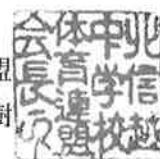 北信越
中学校
体育連盟
会長
盟